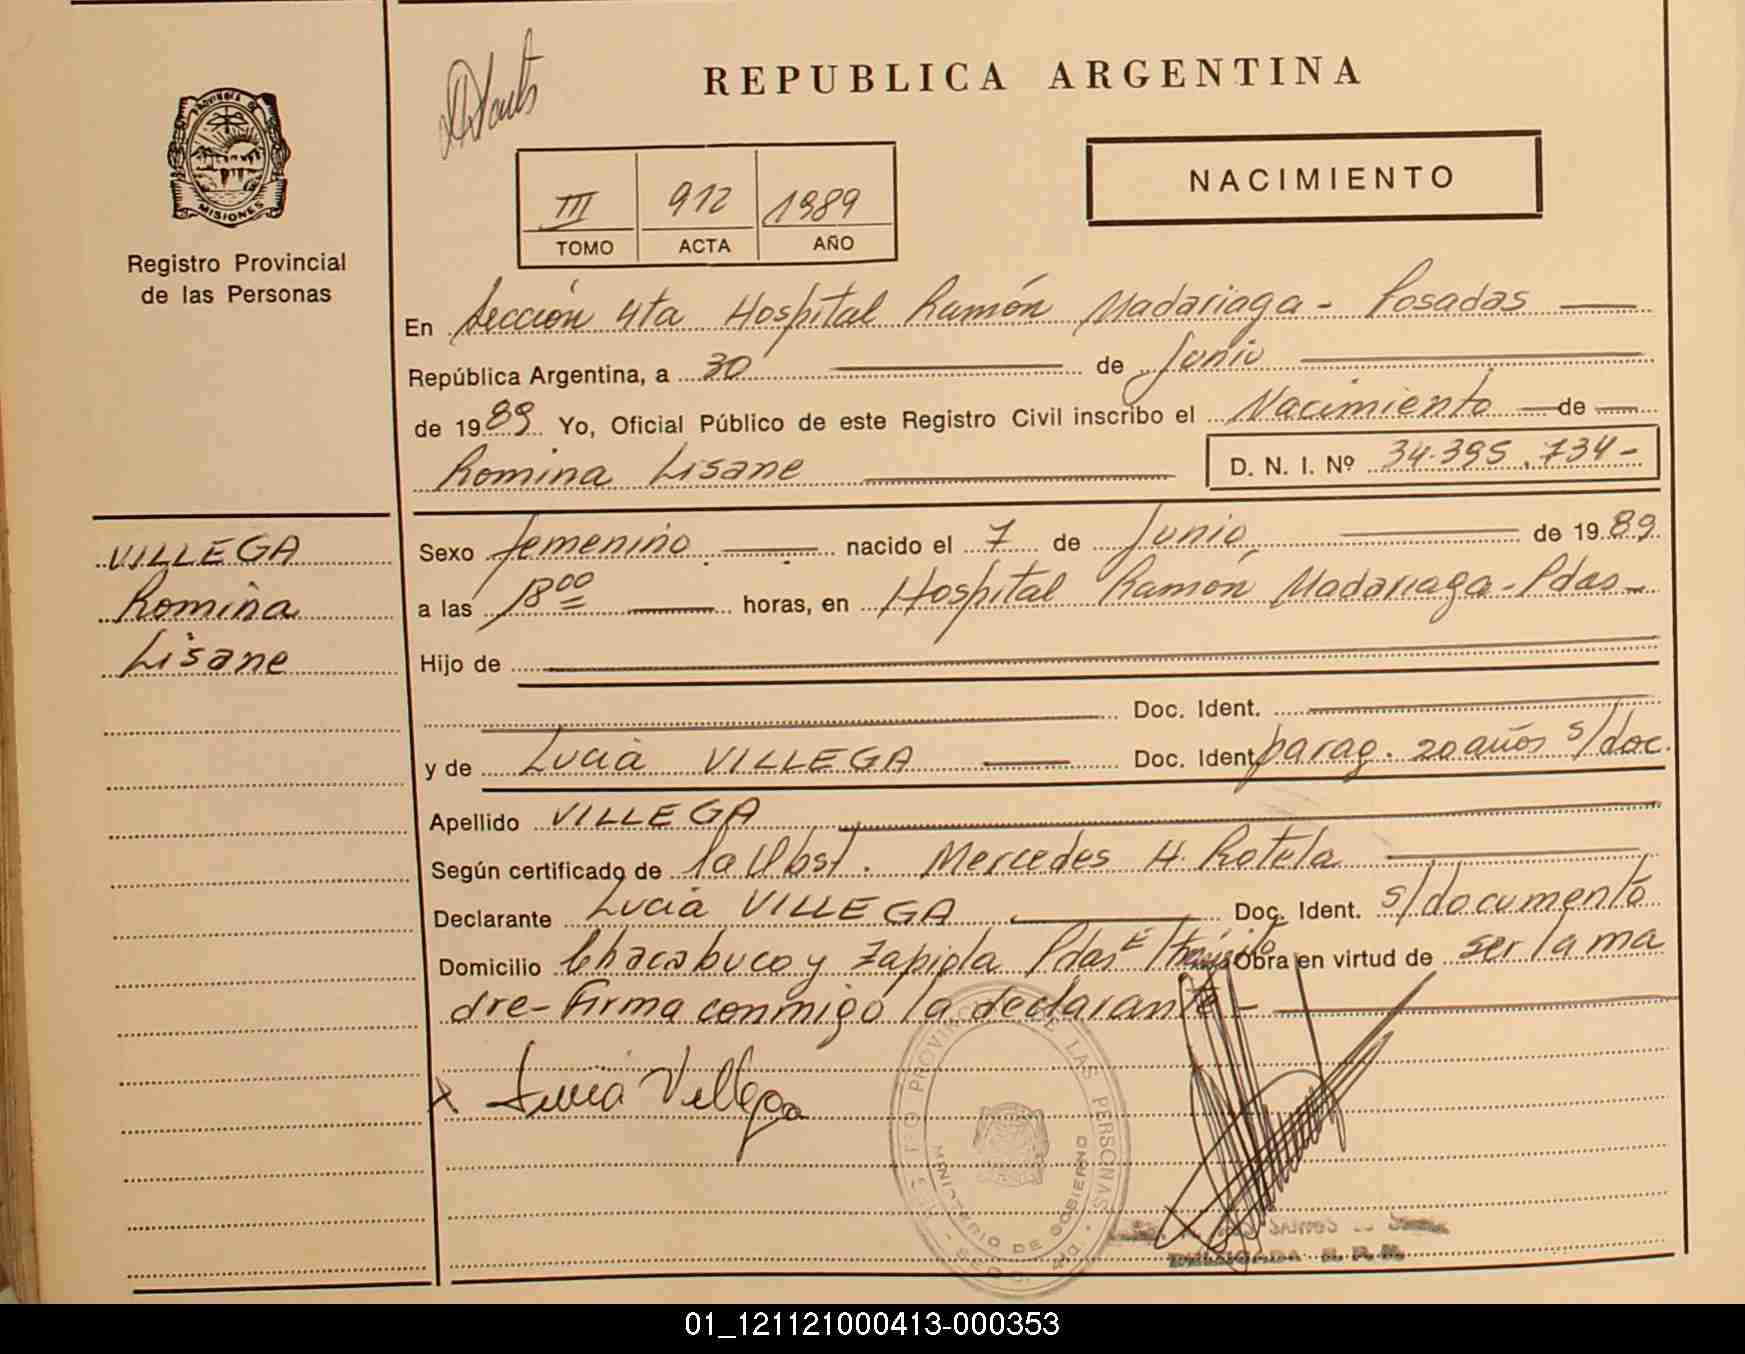 REPUBLICA ARGENTINA
PROVINCIA DE
MISIONES
Registro Provincial
de las Personas
NACIMIENTO
III 912 1989
TOMO ACTA AÑO
En Sección 4ta Hospital Ramón Madariaga - Posadas
República Argentina, a 30 de Junio
de 1989 Yo, Oficial Público de este Registro Civil inscribo el Nacimiento de
Romina Lisane D. N. I. Nº 34.395.734-
VILLEGA
Romina
Lisane
Sexo femenino nacido el 7 de Junio de 1989
a las 18 00 horas, en Hospital Ramón Madariaga - Pdas
Hijo de
Doc. Ident.
y de Lucia VILLEGA Doc. Ident. parag. 20 años s/doc.
Apellido VILLEGA
Según certificado de la Obst. Mercedes H. Rotela
Declarante Lucia VILLEGA Doc. Ident. s/documento
Domicilio Chacabuco y Zapiola Pdas Obra en virtud de ser la ma
dre - Firma conmigo la declarante -
x Lucia Villega
PROVINCIAL DE LAS PERSONAS
MINISTERIO DE GOBIERNO
DELEGADA R. P. P.
01_121121000413-000353